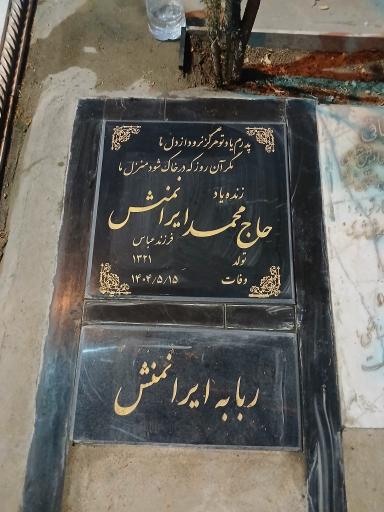 پدرم یاد تو هرگز نرود از دل ما
مگر آن روز که در خاک شود منزل ما
زنده یاد
حاج محمد ایرانمنش
فرزند عباس
تولد ۱۳۲۱
وفات ۱۴۰۴/۵/۱۵
ربابه ایرانمنش